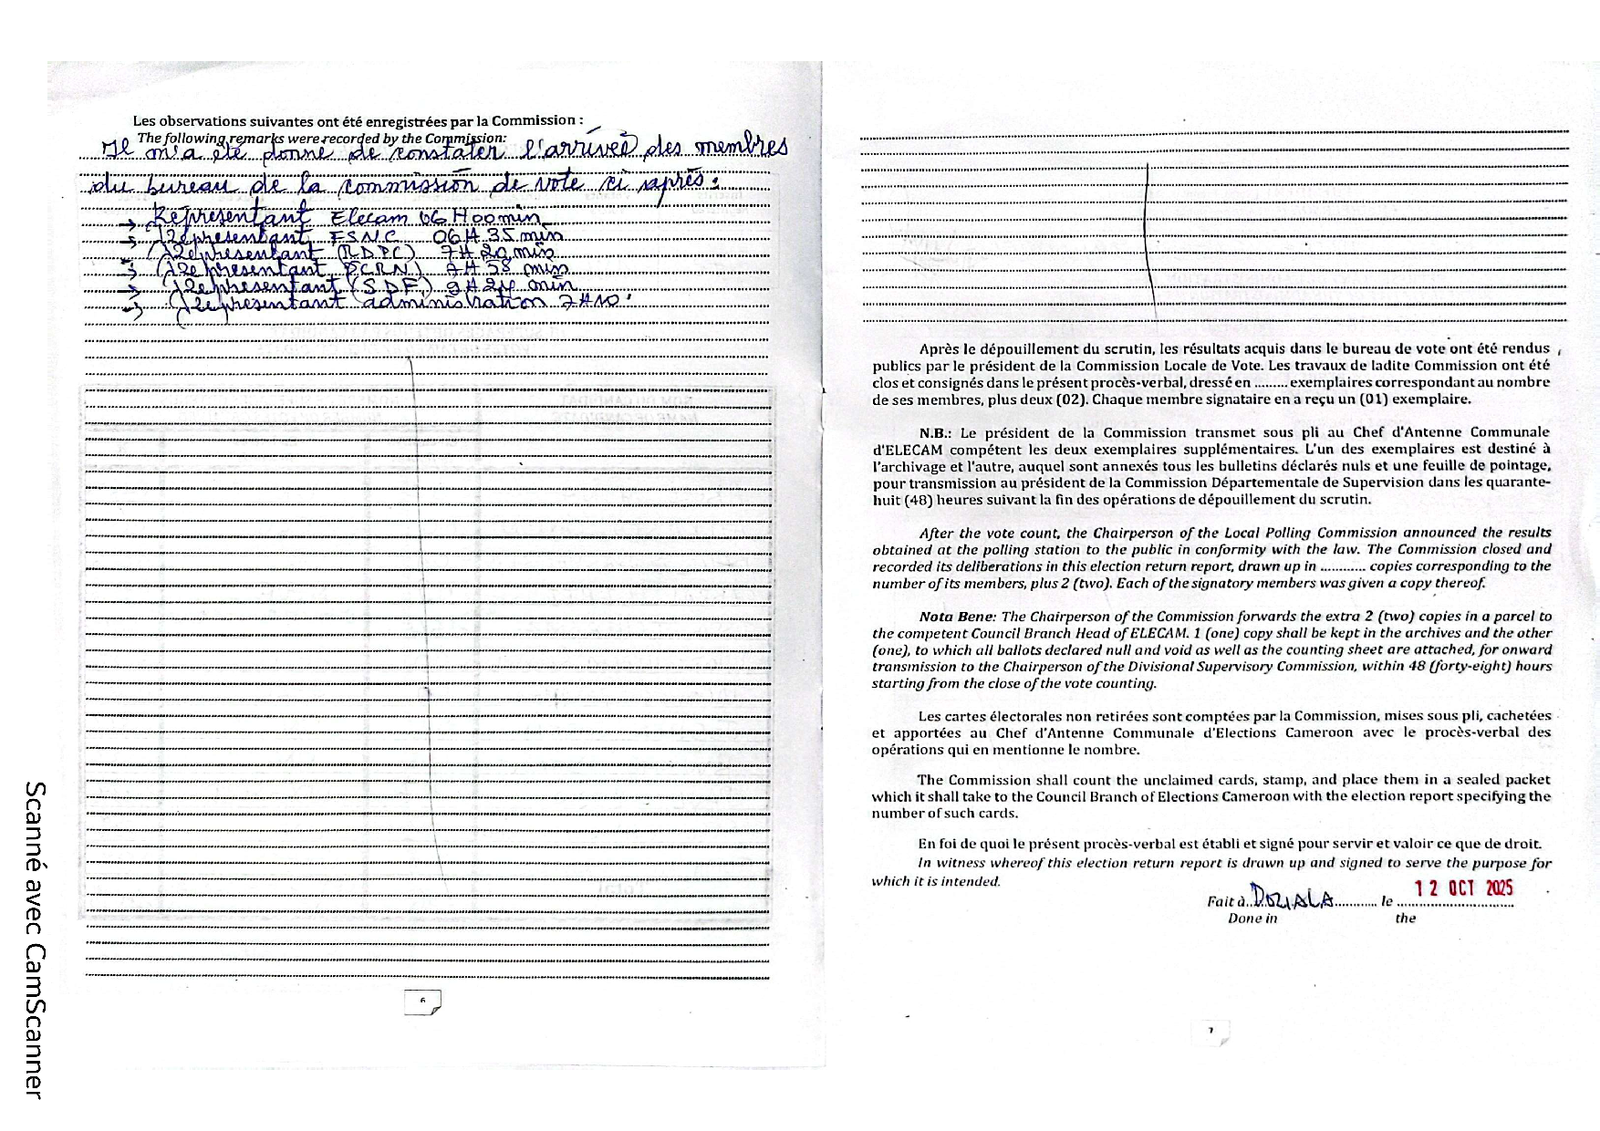 Les observations suivantes ont été enregistrées par la Commission :
The following remarks were recorded by the Commission:
Il m'a été donné de constater l'arrivée des membres
du bureau de la commission de vote ci après:
→ Représentant Elecam 06H00min
→ Représentant FSNC 06H35min
→ Représentant (RDPC) 7H20min
→ Représentant PCRN) 7H58 min
→ Représentant (SDF) 9H24 min
→ Représentant administration 7H10'
6
Après le dépouillement du scrutin, les résultats acquis dans le bureau de vote ont été rendus
publics par le président de la Commission Locale de Vote. Les travaux de ladite Commission ont été
clos et consignés dans le présent procès-verbal, dressé en ......... exemplaires correspondant au nombre
de ses membres, plus deux (02). Chaque membre signataire en a reçu un (01) exemplaire.
N.B.: Le président de la Commission transmet sous pli au Chef d'Antenne Communale
d'ELECAM compétent les deux exemplaires supplémentaires. L'un des exemplaires est destiné à
l'archivage et l'autre, auquel sont annexés tous les bulletins déclarés nuls et une feuille de pointage,
pour transmission au président de la Commission Départementale de Supervision dans les quarante-
huit (48) heures suivant la fin des opérations de dépouillement du scrutin.
After the vote count, the Chairperson of the Local Polling Commission announced the results
obtained at the polling station to the public in conformity with the law. The Commission closed and
recorded its deliberations in this election return report, drawn up in ............ copies corresponding to the
number of its members, plus 2 (two). Each of the signatory members was given a copy thereof.
Nota Bene: The Chairperson of the Commission forwards the extra 2 (two) copies in a parcel to
the competent Council Branch Head of ELECAM. 1 (one) copy shall be kept in the archives and the other
(one), to which all ballots declared null and void as well as the counting sheet are attached, for onward
transmission to the Chairperson of the Divisional Supervisory Commission, within 48 (forty-eight) hours
starting from the close of the vote counting.
Les cartes électorales non retirées sont comptées par la Commission, mises sous pli, cachetées
et apportées au Chef d'Antenne Communale d'Elections Cameroon avec le procès-verbal des
opérations qui en mentionne le nombre.
The Commission shall count the unclaimed cards, stamp, and place them in a sealed packet
which it shall take to the Council Branch of Elections Cameroon with the election report specifying the
number of such cards.
En foi de quoi le présent procès-verbal est établi et signé pour servir et valoir ce que de droit.
In witness whereof this election return report is drawn up and signed to serve the purpose for
which it is intended.
Fait à DOUALA le 12 OCT 2025
Done in the
7
Scanné avec CamScanner